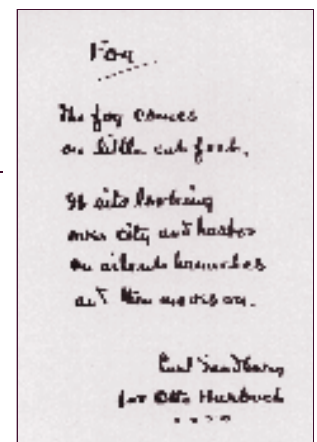 Fog
The fog comes
on little cat feet.
It sits looking
over city and harbor
on silent haunches
and then moves on.
Carl Sandburg
for Otto